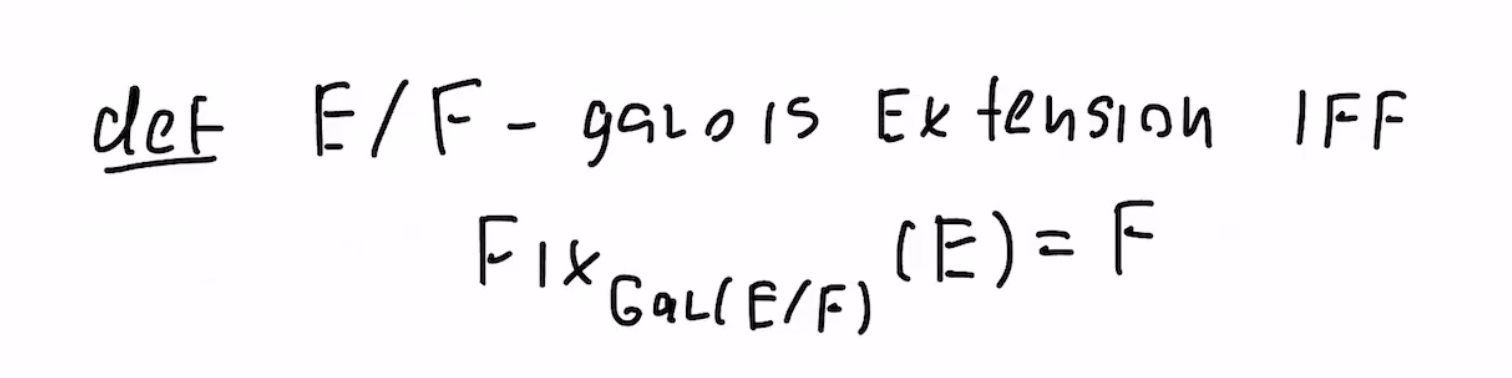 def E/F - galois Extension IFF
Fix_Gal(E/F) (E) = F